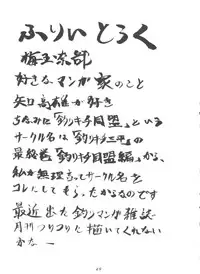 ふりぃとろく
梅玉奈部
好きなマンガ家のこと
矢口高雄が好き
ちなみに「釣りキチ同盟」という
サークル名は「釣りキチ三平」の
最終巻「釣りキチ同盟編」から、
私が無理言ってサークル名を
コレにしてもらったからなのです
最近出た釣りマンガ雑誌
月刊つりコミに描いてくれない
かなー